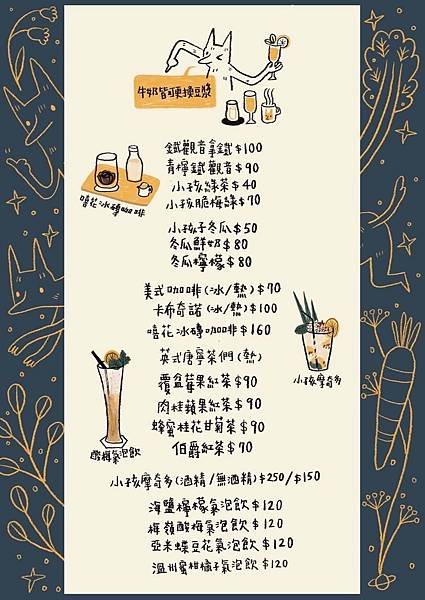 牛奶皆可更換豆漿
鐵觀音拿鐵$100
青檸鐵觀音$90
小孩綠茶$40
小孩脆梅綠$70
嘻花冰磚咖啡
小孩子冬瓜$50
冬瓜鮮奶$80
冬瓜檸檬$80
美式咖啡(冰/熱)$70
卡布奇諾(冰/熱)$100
嘻花冰磚咖啡$160
英式唐寧茶們(熱)
小孩摩奇多
覆盆莓果紅茶$90
肉桂蘋果紅茶$90
蜂蜜桂花甘菊茶$90
伯爵紅茶$70
酸梅氣泡飲
小孩摩奇多(酒精/無酒精)$250/$150
海鹽檸檬氣泡飲$120
梅嶺酸梅氣泡飲$120
亞米蝶豆花氣泡飲$120
溫州蜜柑橘子氣泡飲$120